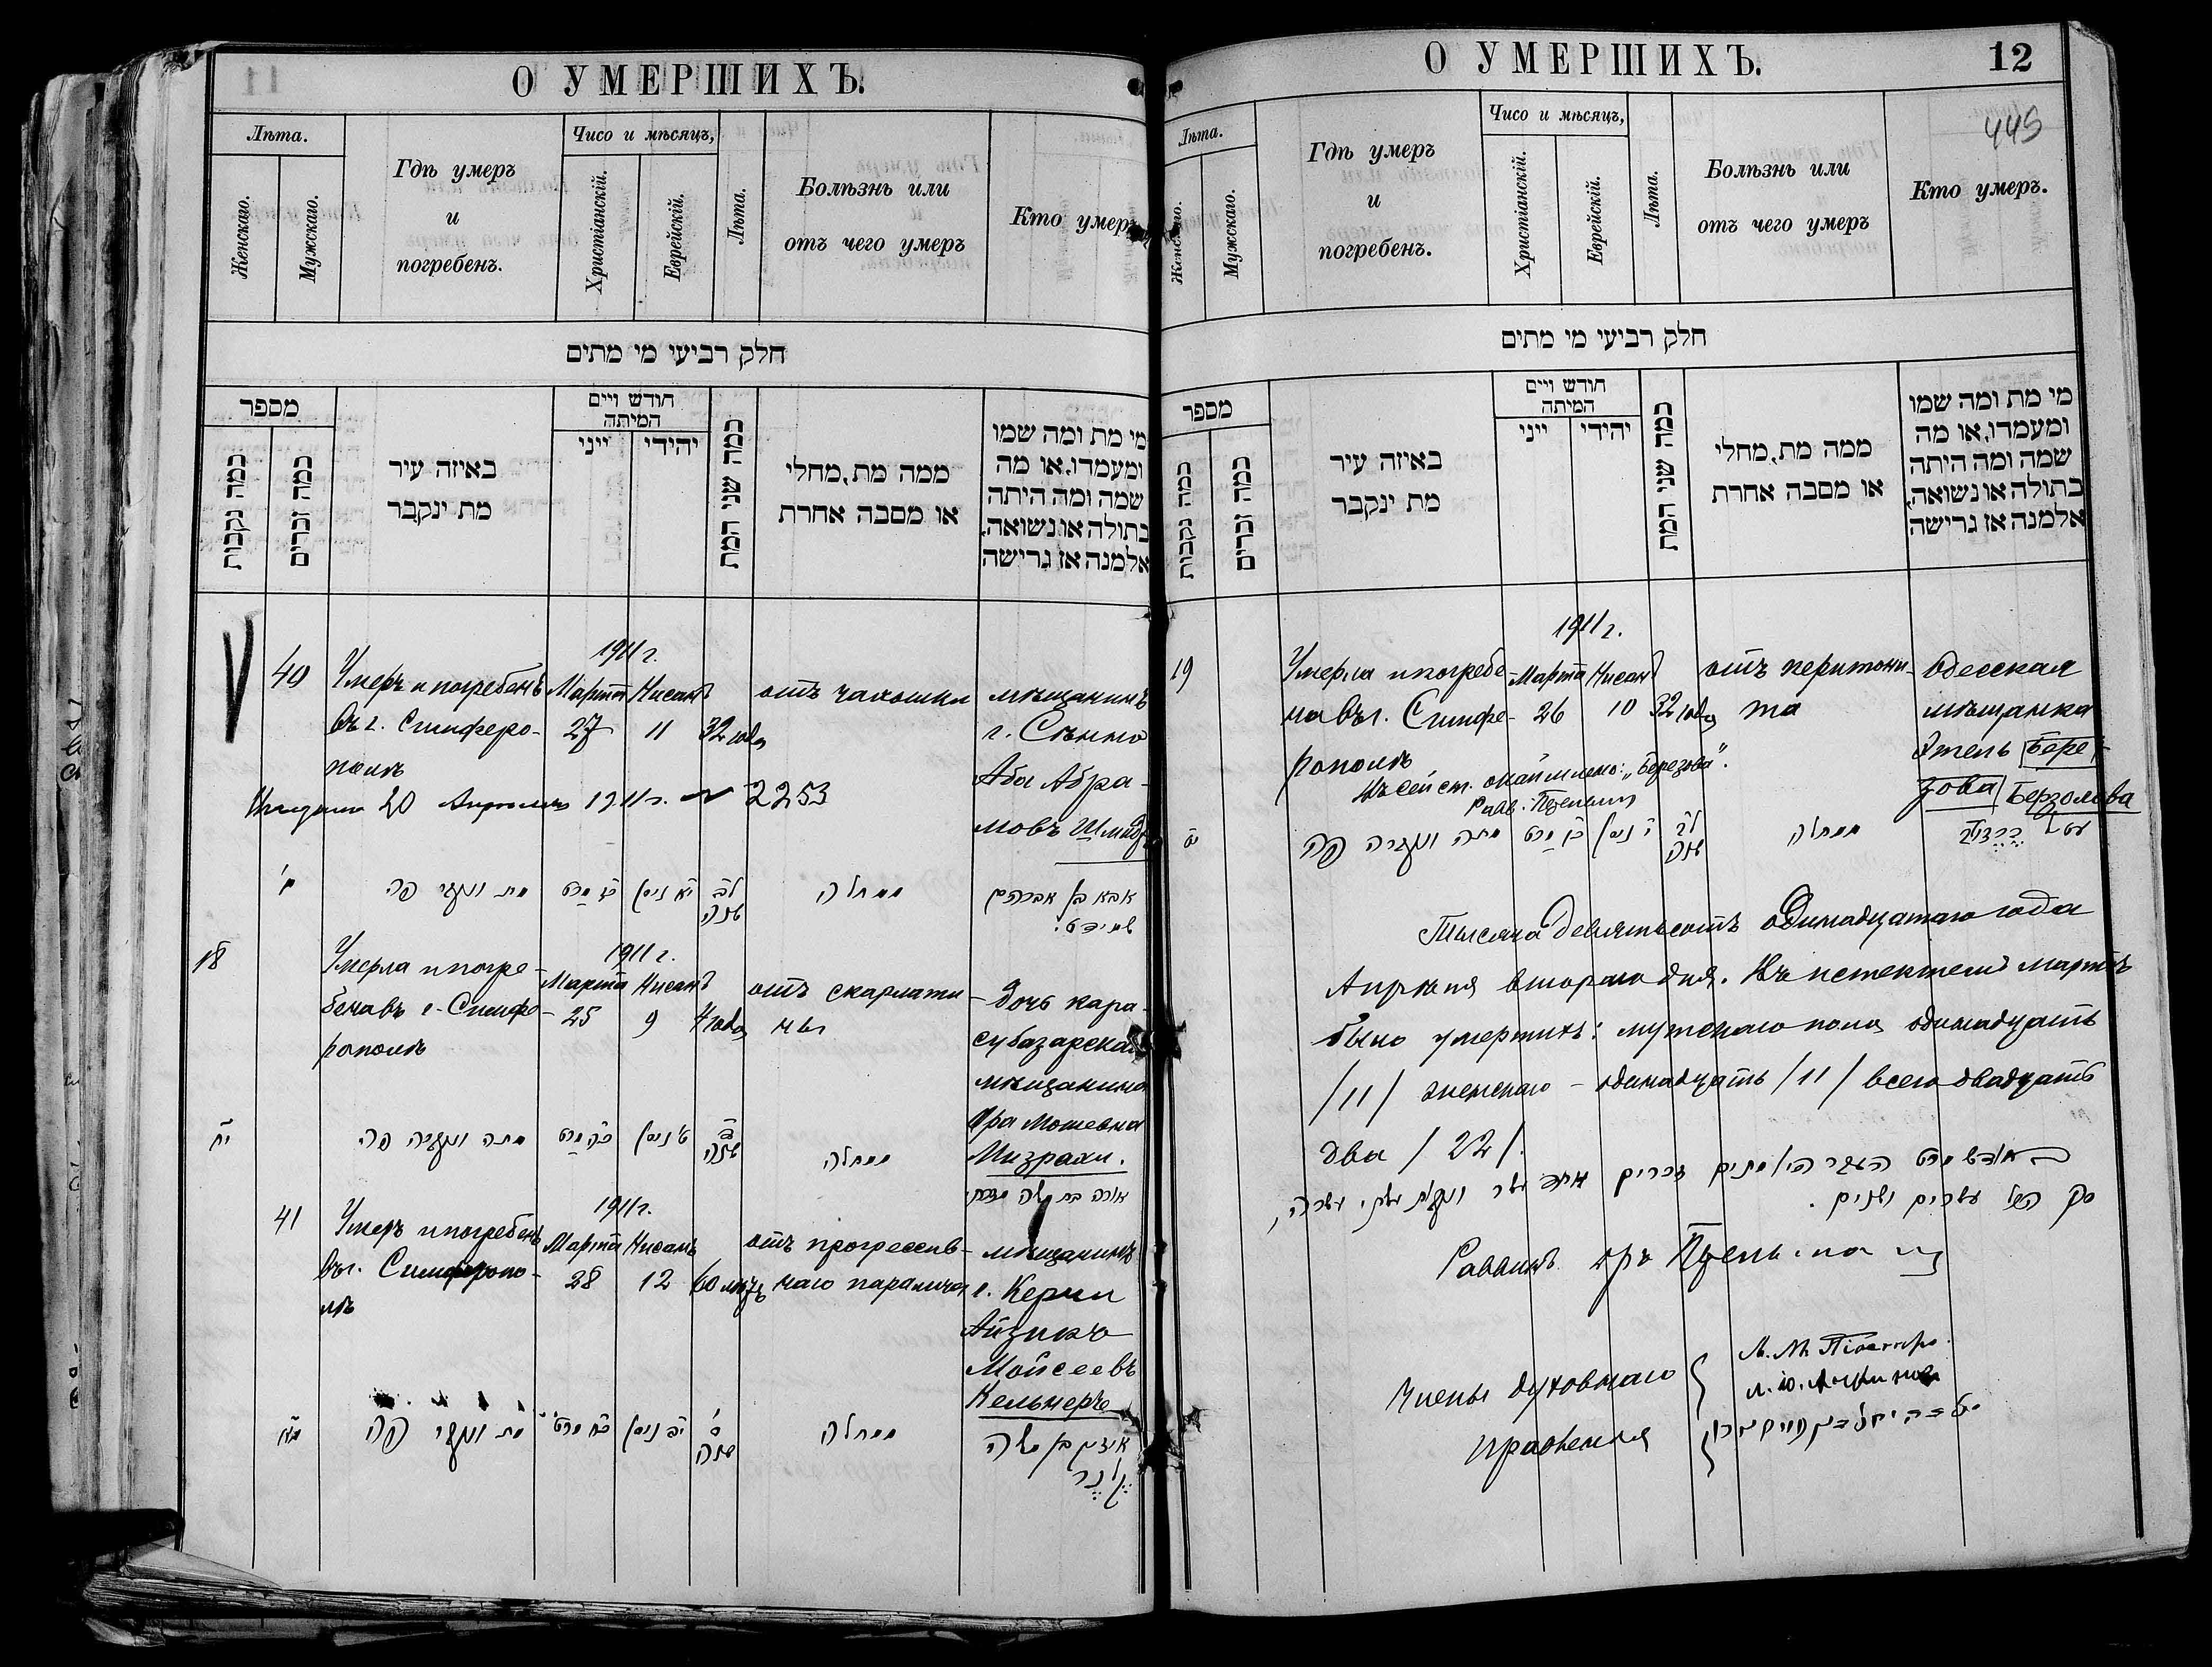 О УМЕРШИХЪ.
Лѣта.
Женскаго.
Мужскаго.
Гдѣ умеръ
и
погребенъ.
Чисо и мѣсяцъ,
Христіанскій.
Еврейскій.
Лѣта.
Болѣзнь или
отъ чего умеръ
Кто умеръ.
חלק רביעי מי מתים
מספר
כמה נקבות
כמה זכרים
באיזה עיר
מת ינקבר
חודש ויים
המיתה
ייני
יהידי
כמה שני המת
ממה מת, מחלי
או מסבה אחרת
מי מת ומה שמו
ומעמדו, או מה
שמה ומה היתה
בתולה או נשואה,
אלמנה אז גרישה
40
Умеръ и погребенъ
въ г. Симферо-
полѣ
1911 г.
Марта Нисанъ
27 11 32 года
отъ чахотки
мѣщанинъ
г. Сѣнно
Аба Абра-
мовъ Шмидъ
20 Апрѣля 1911 г. № 2253
מ'
מת ונקבר פה
כז מרט
יא ניסן
לב
שנה
ממחלה
אבא בן אברהם
שמידט
18
Умерла и погре-
бена въ г. Симфе-
рополѣ
1911 г.
Марта Нисанъ
25 9 4 года
отъ скарлати-
ны
Дочь кара-
субазарскаго
мѣщанина
Ора Мошевна
Мизрахи.
יח
מתה ונקברה פה
כה מרט
ט' ניסן
שנה
ממחלה
אורה בת משה מזרחי
41
Умеръ и погребенъ
въ г. Симферопо-
лѣ
1911 г.
Марта Нисанъ
28 12 60 лѣтъ
отъ прогрессив-
наго паралича
мѣщанинъ
г. Керчи
Айзикъ
Мойсеевъ
Кельнеръ
מא
מת ונקבר פה
כח מרט
יב ניסן
ס'
שנה
ממחלה
אייזיק בן משה
קלנר
О УМЕРШИХЪ.
12
445
Лѣта.
Женскаго.
Мужскаго.
Гдѣ умеръ
и
погребенъ.
Чисо и мѣсяцъ,
Христіанскій.
Еврейскій.
Лѣта.
Болѣзнь или
отъ чего умеръ
Кто умеръ.
חלק רביעי מי מתים
מספר
כמה נקבות
כמה זכרים
באיזה עיר
מת ינקבר
חודש ויים
המיתה
ייני
יהידי
כמה שני המת
ממה מת, מחלי
או מסבה אחרת
מי מת ומה שמו
ומעמדו, או מה
שמה ומה היתה
בתולה או נשואה,
אלמנה אז גרישה
19
Умерла и погребе-
на въ г. Симфе-
рополѣ
1911 г.
Марта Нисанъ
26 10 32 года
отъ перитони-
та
Одесская
мѣщанка
Этель Бере-
зова Берзолова
Въ сей ст. „Березова".
Равв.
מתה ונקברה פה
כו מרט
י' ניסן
לב
שנה
ממחלה
עטל
Тысяча девятьсотъ одинадцатаго года
Апрѣля второго дня. Въ истекшемъ Мартѣ
было умершихъ: мужскаго пола одинадцать
/11/ женскаго – одинадцать /11/ всего двадцать
два /22/.
סך הכל עשרים ושנים.
Раввинъ
Члены духовнаго
правленія